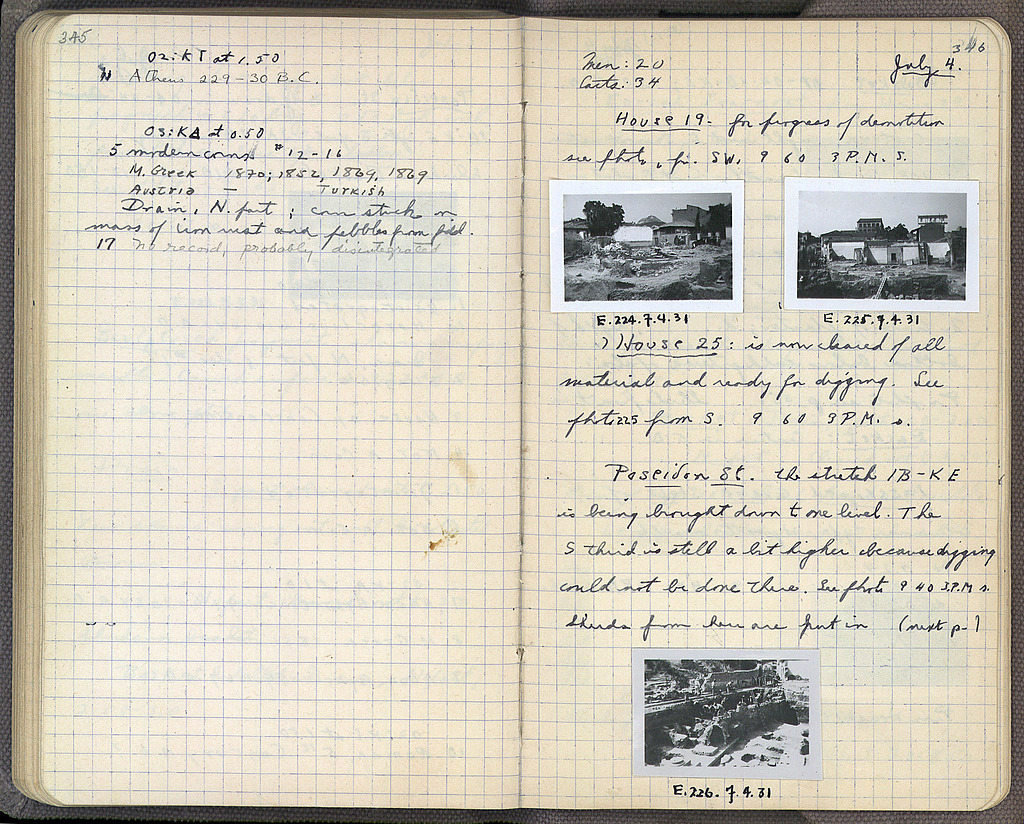 345
02:ΚΓ at 1.50
11 Athens 229-30 B.C.
03:ΚΔ at 0.50
5 modern coins #12-16
M. Greek 1870; 1852, 1869, 1869
Austria — Turkish
Drain, N. part; coin stuck in
mass of iron rust and pebbles from fill.
17 no record, probably disintegrated
346
Men: 20
Carts: 34
July 4.
House 19. for progress of demolition
see photo, fr. SW. 9 60 3 P.M. S.
E.224.7.4.31
E.225.7.4.31
House 25: is now cleared of all
material and ready for digging. See
photo 225 from S. 9 60 3 P.M. s.
Poseidon St. the stretch ΙΒ-ΚΕ
is being brought down to one level. The
S third is still a bit higher because digging
could not be done there. See photo 9 40 3 P.M s.
Sherds from here are put in (next p.)
E.226.7.4.31